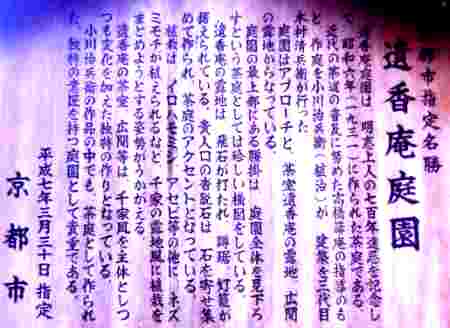 都市指定名勝
遺香庵庭園
遺香庵庭園は、明恵上人の七百年遠忌を記念し
て、昭和六年(一九三一)に作られた茶庭である。
近代の茶道の普及に努めた高橋箒庵の指導のも
と、作庭を小川治兵衛(植治)が、建築を三代目
木村清兵衛が行った。
庭園はアプローチと、茶室遺香庵の露地、広間
の露地からなっている。
庭園の最上部にある腰掛は、庭園全体を見下ろ
すという茶庭としては珍しい構図をしている。
遺香庵の露地は、飛石が打たれ、蹲踞、灯籠が
据えられている。貴人口の沓脱石は、石を寄せ集
めて作られ、茶庭のアクセントとなっている。
植栽は、イロハモミジ、アセビ等の他に、ネズ
ミモチが植えられるなど、千家の露地風に植栽を
まとめようとする姿勢がうかがえる。
遺香庵の茶室、広間等は、千家風を主体としつ
つも変化を加えた独特の作りとなっている。
小川治兵衛の作品の中でも、茶庭として作られ
た、独特の意匠を持つ庭園として貴重である。
平成七年三月三十日 指定
京都市